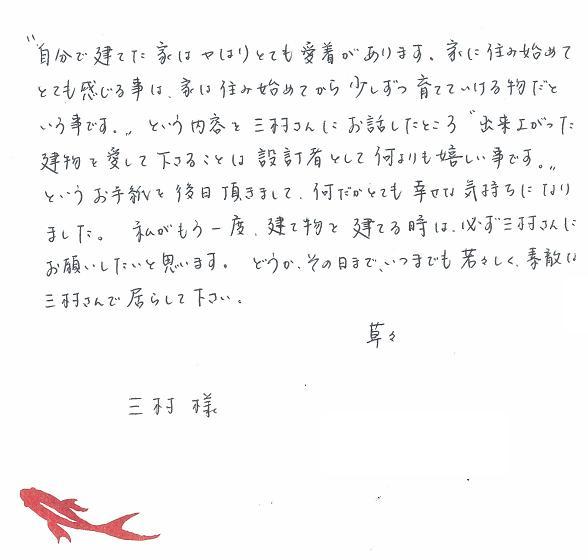 "自分で建てた家はやはりとても愛着があります。家に住み始めて
とても感じる事は、家は住み始めてから少しずつ育てていける物だと
いう事です。„ という内容を三村さんにお話したところ "出来上がった
建物を愛して下さることは設計者として何よりも嬉しい事です。„
というお手紙を後日頂きまして、何だかとても幸せな気持ちになり
ました。 私がもう一度、建て物を建てる時は、必ず三村さんに
お願いしたいと思います。 どうか、その日まで、いつまでも若々しく、素敵な
三村さんで居らして下さい。
草々
三村様